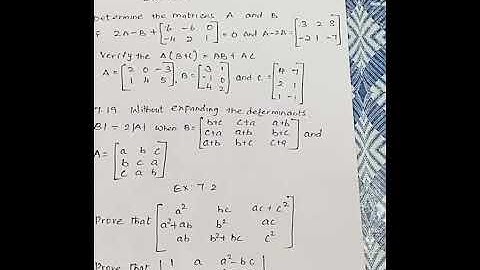 Determine the matrices A and B
If 2A-B + [6 -6 0
-4 2 1] = 0 and A-2B = [3 2 8
-2 1 -7]
Verify the A(B+C) = AB + AC
A = [2 0 -3
1 4 5], B = [3 1
-1 0
4 2] and C = [4 7
2 1
1 -1]
7.19. Without expanding the determinants
|B| = 2|A| when B = [b+c c+a a+b
c+a a+b b+c
a+b b+c c+a] and
A = [a b c
b c a
c a b]
Ex: 7.2
Prove that [a² bc ac+c²
a²+ab b² ac
ab b²+bc c²]
Prove that | 1 a a²-bc |